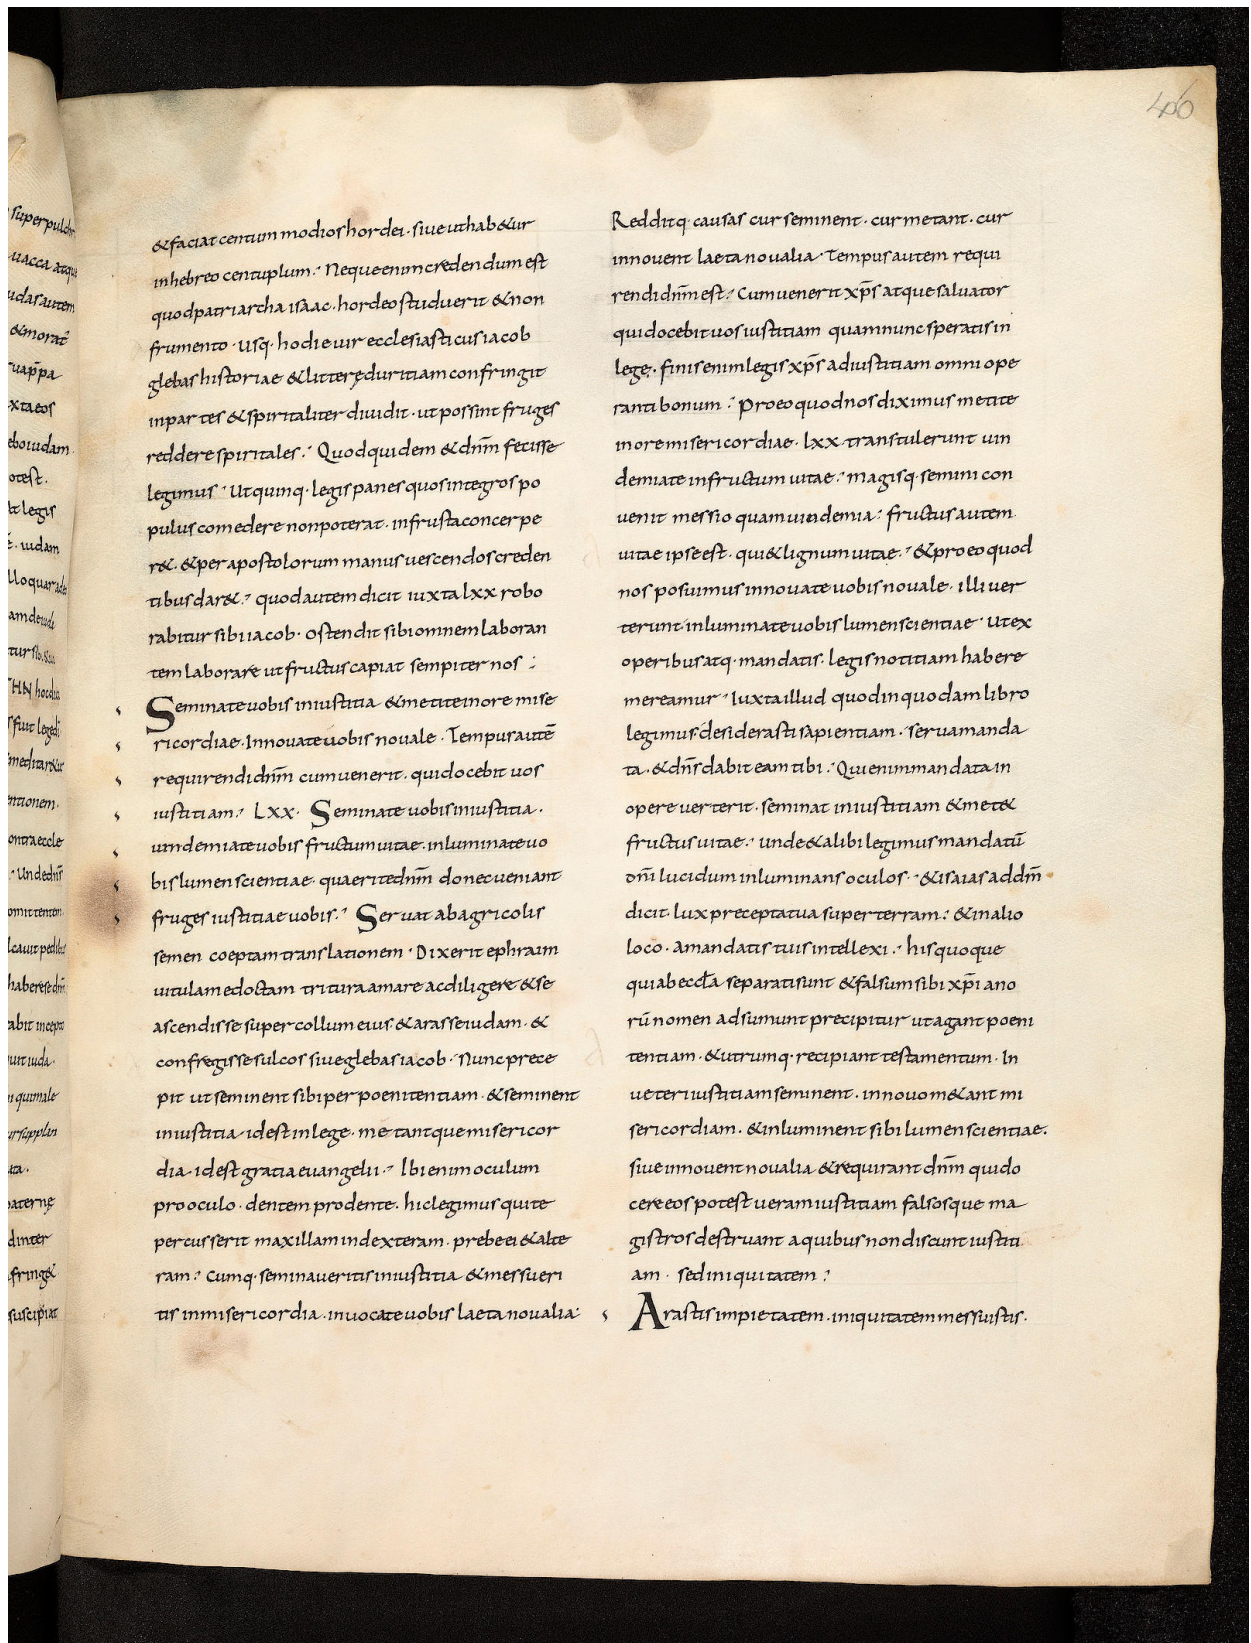 46
&faciat centum modios hordei · siue ut hab&ur
in hebreo centuplum · Neque enim credendum est
quod patriarcha isaac · hordeo studuerit & non
frumento · usq· hodie uir ecclesiasticus iacob
glebas historiae & litterę duritiam confringit
in partes & spiritaliter diuidit · ut possint fruges
reddere spiritales · Quod quidem & dnm̄ fecisse
legimus · Ut quinq· legis panes quos integros po
pulus comedere non poterat · in frusta concerpe
r& · & per apostolorum manus uescendos creden
tibus dar& · quod autem dicit iuxta lxx robo
rabitur sibi iacob · Ostendit sibi omnem laboran
tem laborare ut fructus capiat sempiternos :
Seminate uobis in iustitia & metite in ore mise
ricordiae · Innouate uobis nouale · Tempus autē
requirendi dnm̄ cum uenerit · qui docebit uos
iustitiam · Lxx · Seminate uobis in iustitia ·
uindemiate uobis fructum uitae · inluminate uo
bis lumen scientiae · quaerite dnm̄ donec ueniant
fruges iustitiae uobis · Seruat ab agricolis
semen coeptam translationem · Dixerit ephraim
uitulam edoctam trituram amare ac diligere & se
ascendisse super collum eius · & arasse iudam · &
confregisse sulcos siue glebas iacob · Nunc prece
pit ut seminent sibi per poenitentiam · & seminent
in iustitia · id est in lege · metantque misericor
dia · id est gratia euangelii · Ibi enim oculum
pro oculo · dentem pro dente · hic legimus qui te
percusserit maxillam in dexteram · prebe ei & alte
ram : Cumq· seminaueritis in iustitia & messueri
tis in misericordia · inuocate uobis laeta noualia
Redditq· causas cur seminent · cur metant · cur
innouent laeta noualia · Tempus autem requi
rendi dnm̄ est · Cum uenerit xp̄s atque saluator
qui docebit uos iustitiam quam nunc speratis in
lege · finis enim legis xp̄s ad iustitiam omni ope
ranti bonum · Pro eo quod nos diximus metite
in ore misericordiae · lxx transtulerunt uin
demiate in fructum uitae · magisq· semini con
uenit messio quam uindemia : fructus autem
uitae ipse est · qui & lignum uitae · & pro eo quod
nos posuimus innouate uobis nouale · illi uer
terunt · inluminate uobis lumen scientiae · Ut ex
operibus atq· mandatis · legis notitiam habere
mereamur · Iuxta illud quod in quodam libro
legimus desiderasti sapientiam · serua manda
ta · & dn̄s dabit eam tibi · Qui enim mandata in
opere uerterit · seminat in iustitiam & met&
fructus uitae · unde & alibi legimus mandatū
dn̄i lucidum inluminans oculos · & isaias ad dnm̄
dicit · lux precepta tua super terram : & in alio
loco · a mandatis tuis intellexi · his quoque
qui ab eccl̄a separati sunt & falsum sibi xp̄iano
rū nomen adsumunt precipitur ut agant poeni
tentiam · & utrumq· recipiant testamentum · In
ueteri iustitiam seminent · in nouo m&ant mi
sericordiam · & inluminent sibi lumen scientiae ·
siue innouent noualia & requirant dnm̄ qui do
cere eos potest ueram iustitiam falsosque ma
gistros destruant a quibus non discunt iustiti
am · sed iniquitatem :
Arastis impietatem · iniquitatem messuistis ·